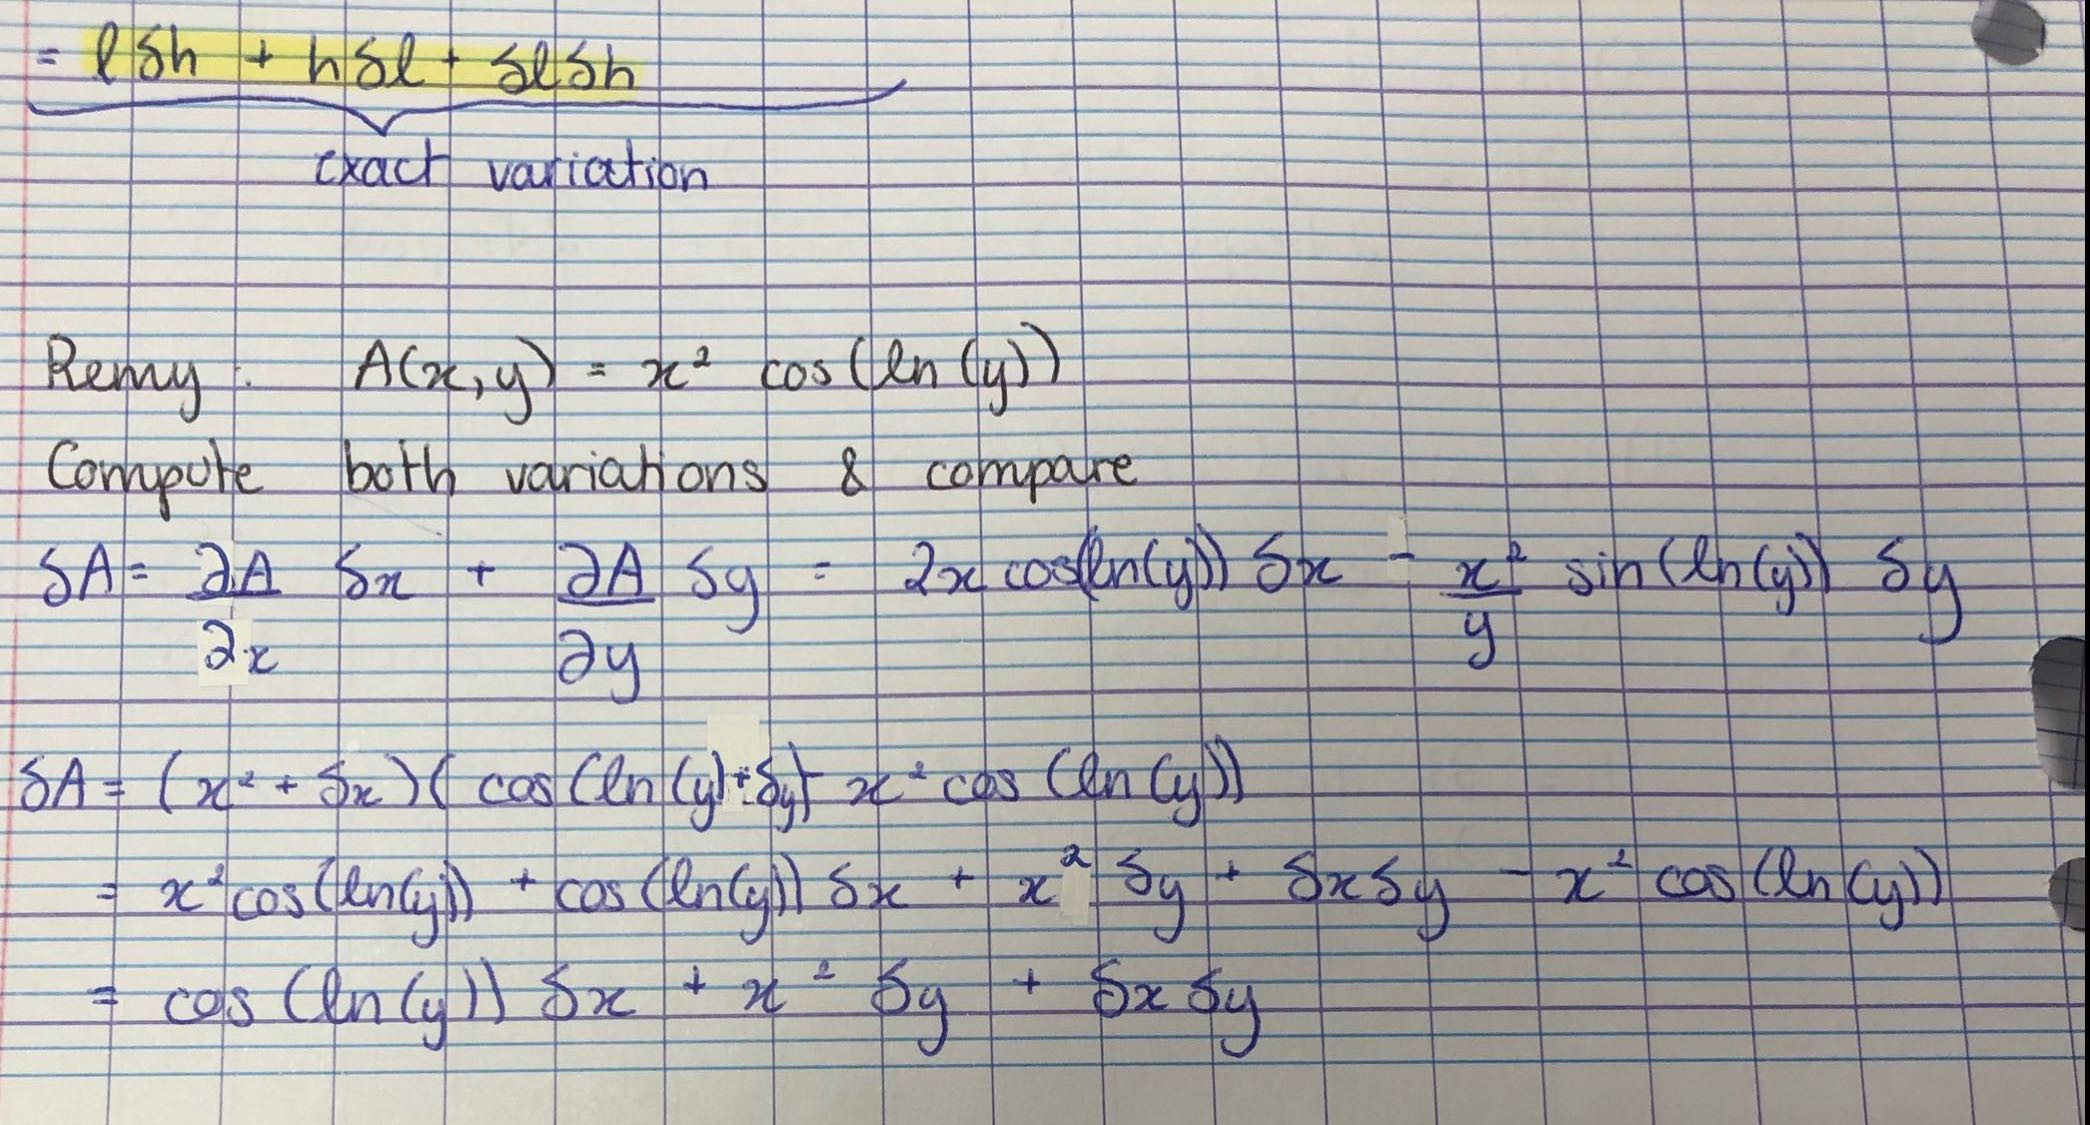 = lδh + hδl + δlδh
exact variation
Remy: A(x,y) = x² cos(ln(y))
Compute both variations & compare
δA = ∂A/∂x δx + ∂A/∂y δy = 2x cos(ln(y)) δx - x²/y sin(ln(y)) δy
δA = (x² + δx)(cos(ln(y)+δy) - x² cos(ln(y))
= x² cos(ln(y)) + cos(ln(y)) δx + x² δy + δxδy - x² cos(ln(y))
= cos(ln(y)) δx + x² δy + δxδy